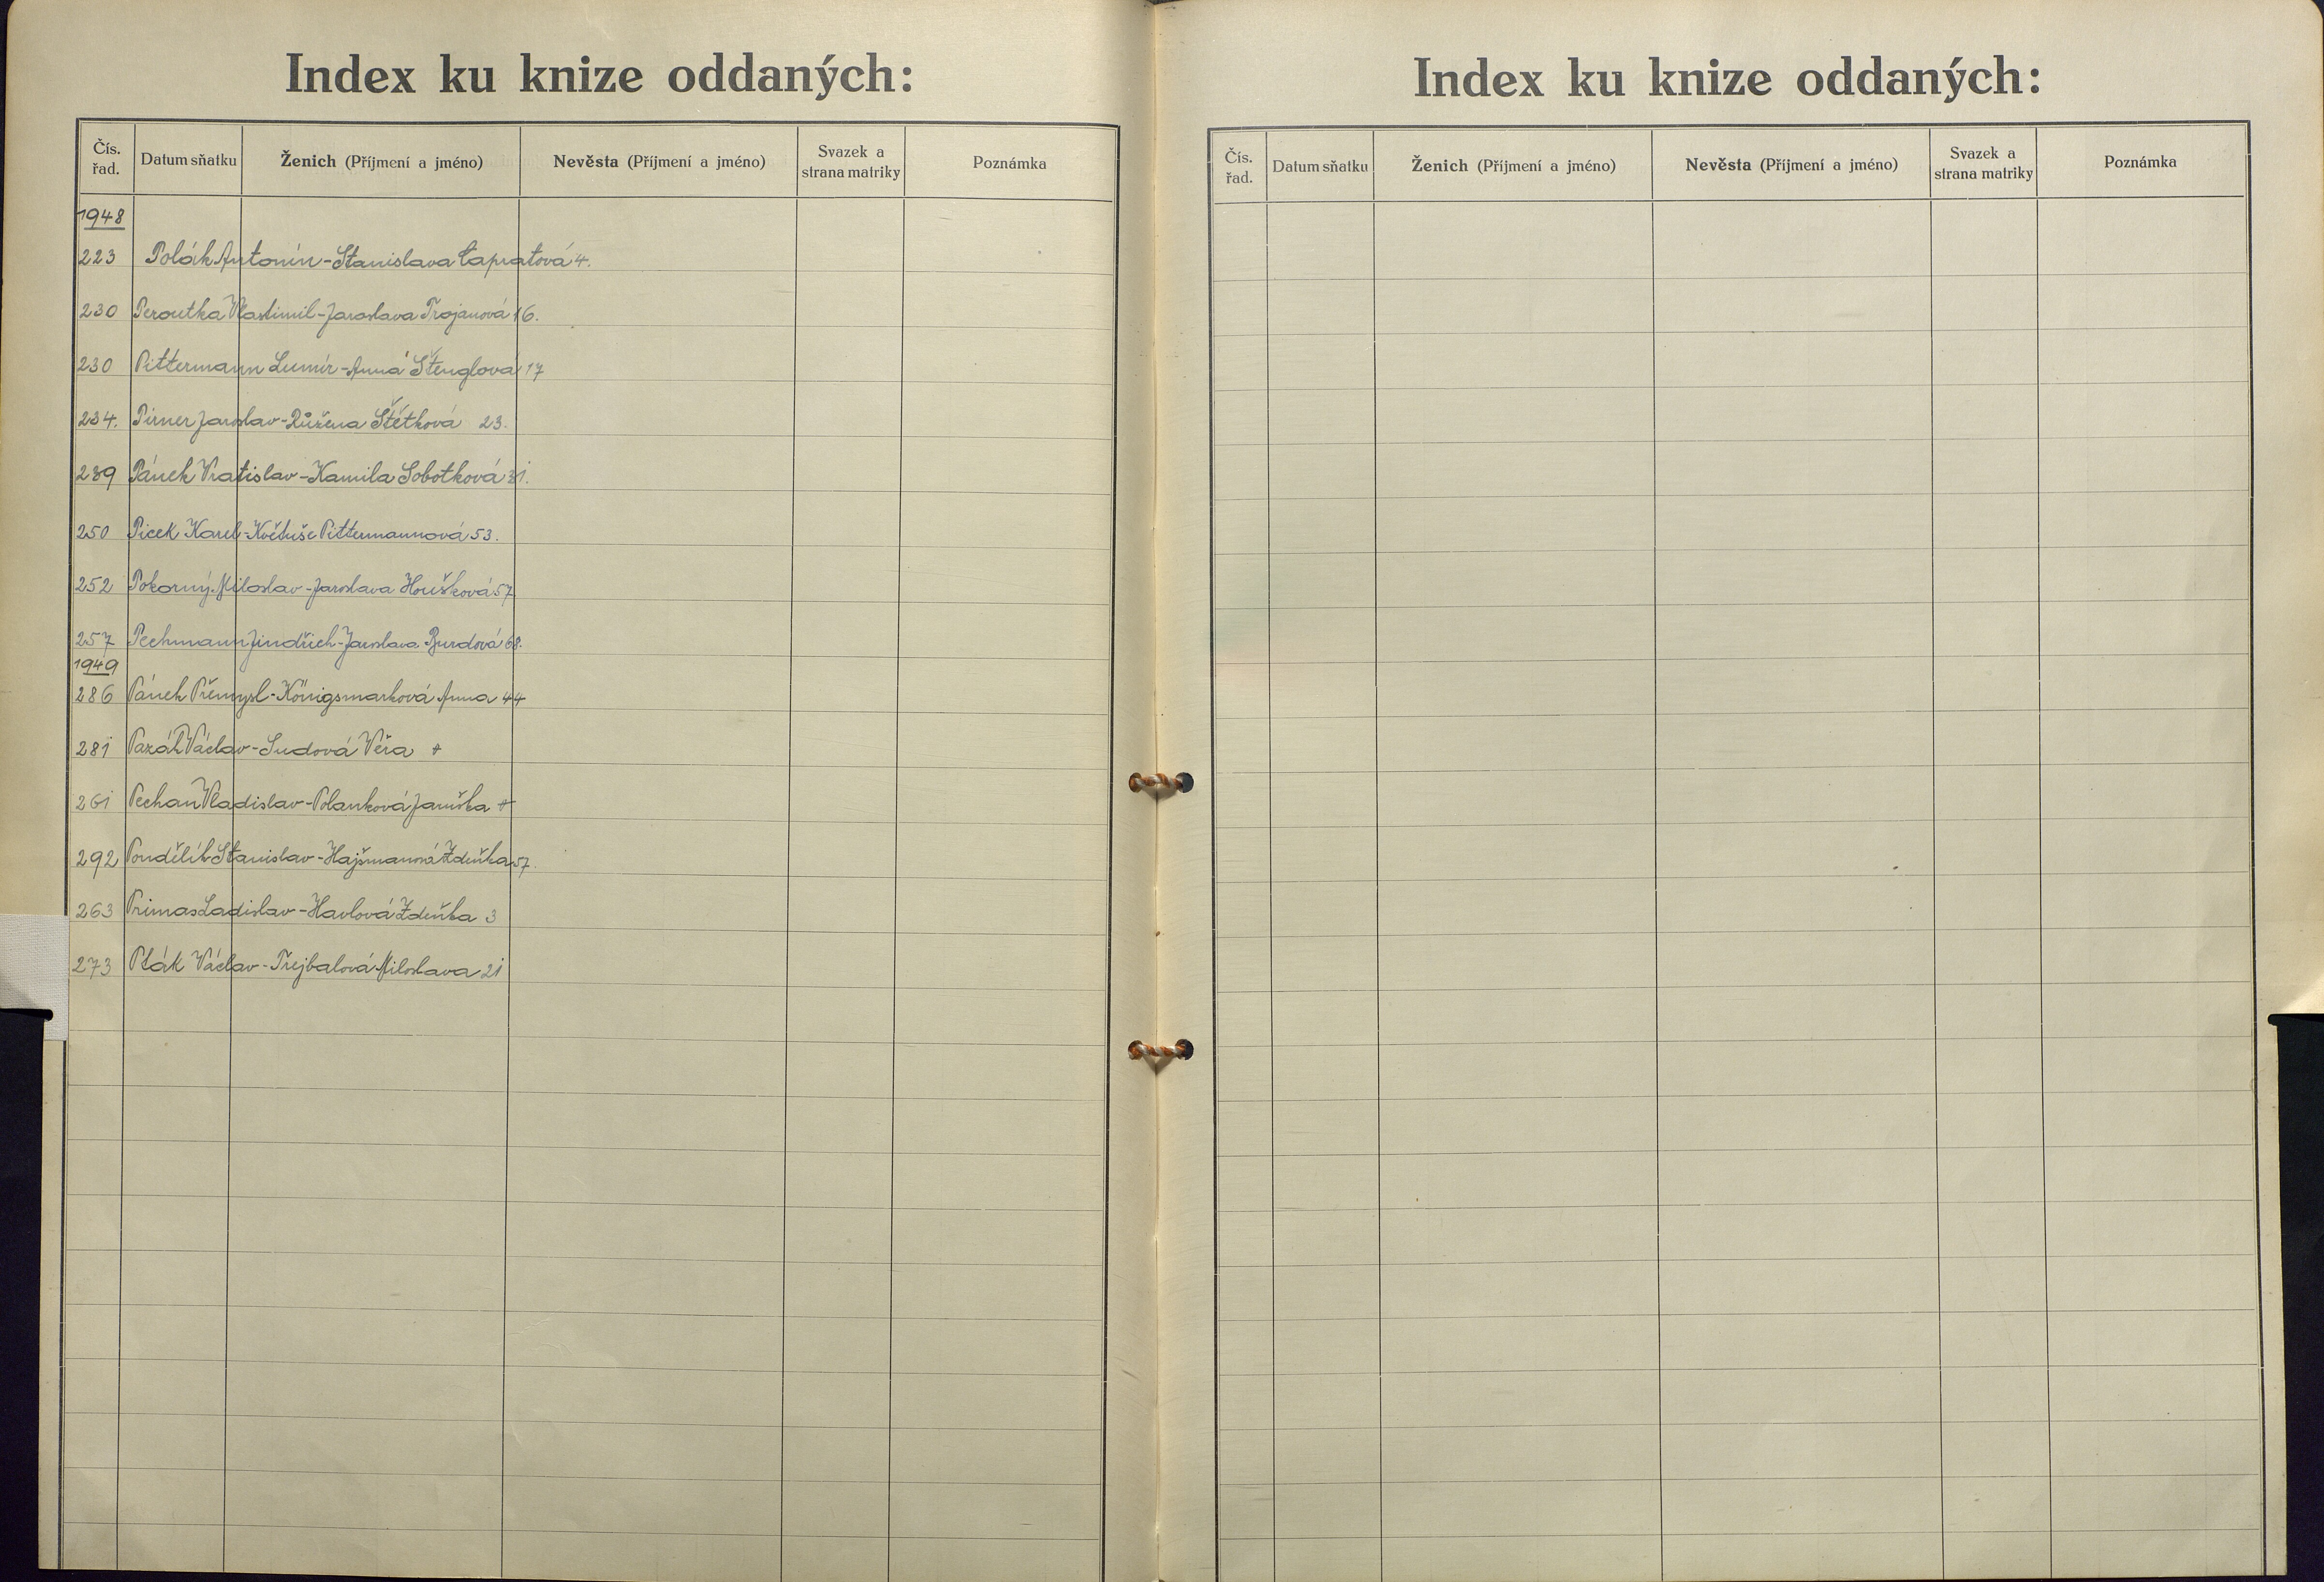 Index ku knize oddaných:
Čís. řad. Datum sňatku Ženich (Příjmení a jméno) Nevěsta (Příjmení a jméno) Svazek a strana matriky Poznámka
1948
223 Polák Antonín - Stanislava Capratová 4.
230 Peroutka Vlastimil - Jaroslava Trojanová 16.
230 Pittermann Lumír - Anna Štenglová 17
234. Pirner Jaroslav - Růžena Štětková 23.
239 Pánek Vratislav - Kamila Sobotková 31.
250 Picek Karel - Květuše Pittermannová 53.
252 Pokorný Miloslav - Jaroslava Houšková 57
257 Pechmann Jindřich - Jaroslava Burdová 68.
1949
286 Pánek Přemysl - Königsmarková Anna 44
281 Pazák Václav - Sudová Věra
261 Pechan Vladislav - Polanková Jaruška
292 Pondělík Stanislav - Hajšmanová Zdeňka 57.
263 Primas Ladislav - Havlová Zdeňka 3
273 Pták Václav - Trejbalová Miloslava 21
Index ku knize oddaných:
Čís. řad. Datum sňatku Ženich (Příjmení a jméno) Nevěsta (Příjmení a jméno) Svazek a strana matriky Poznámka